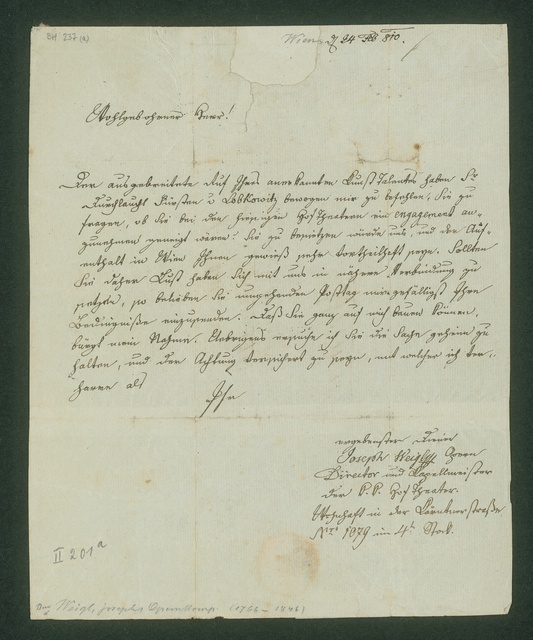 BH 237 (a)
Wien, d 24 Feb 810.
Wohlgebohrner Herr!
Der ausgebreitete Ruf Ihres anerkannten Kunst Talentes haben Se
Durchlaucht Fürsten v Lobkowitz bewogen mir zu befehlen, Sie zu
fragen, ob Sie bei den hiesigen Hof Theatern ein engagement an-
zunehmen geneigt wären: Sie zu besitzen würde uns, und der Auf-
enthalt in Wien Ihnen gewiß sehr vortheilhaft seyn. Sollten
Sie daher Lust haben sich mit uns in nähere Verbindung zu
setzen, so belieben Sie umgehenden Posttag mir gefälligst Ihre
Bedingniße einzusenden. Daß Sie ganz auf mich bauen können,
bürgt mein Nahme. Uebrigens ersuche ich Sie die Sache geheim zu
halten, und der Achtung versichert zu seyn, mit welcher ich ver-
harre als
Ihr
ergebenster Diener
Joseph Weigl
Director und Kapellmeister
der k. k. Hof Theater.
Wohnhaft in der Kärntnerstraße
Nro 1079 im 4t Stock.
II 201a
Weigl, Joseph, Opernkomp. (1766-1846)